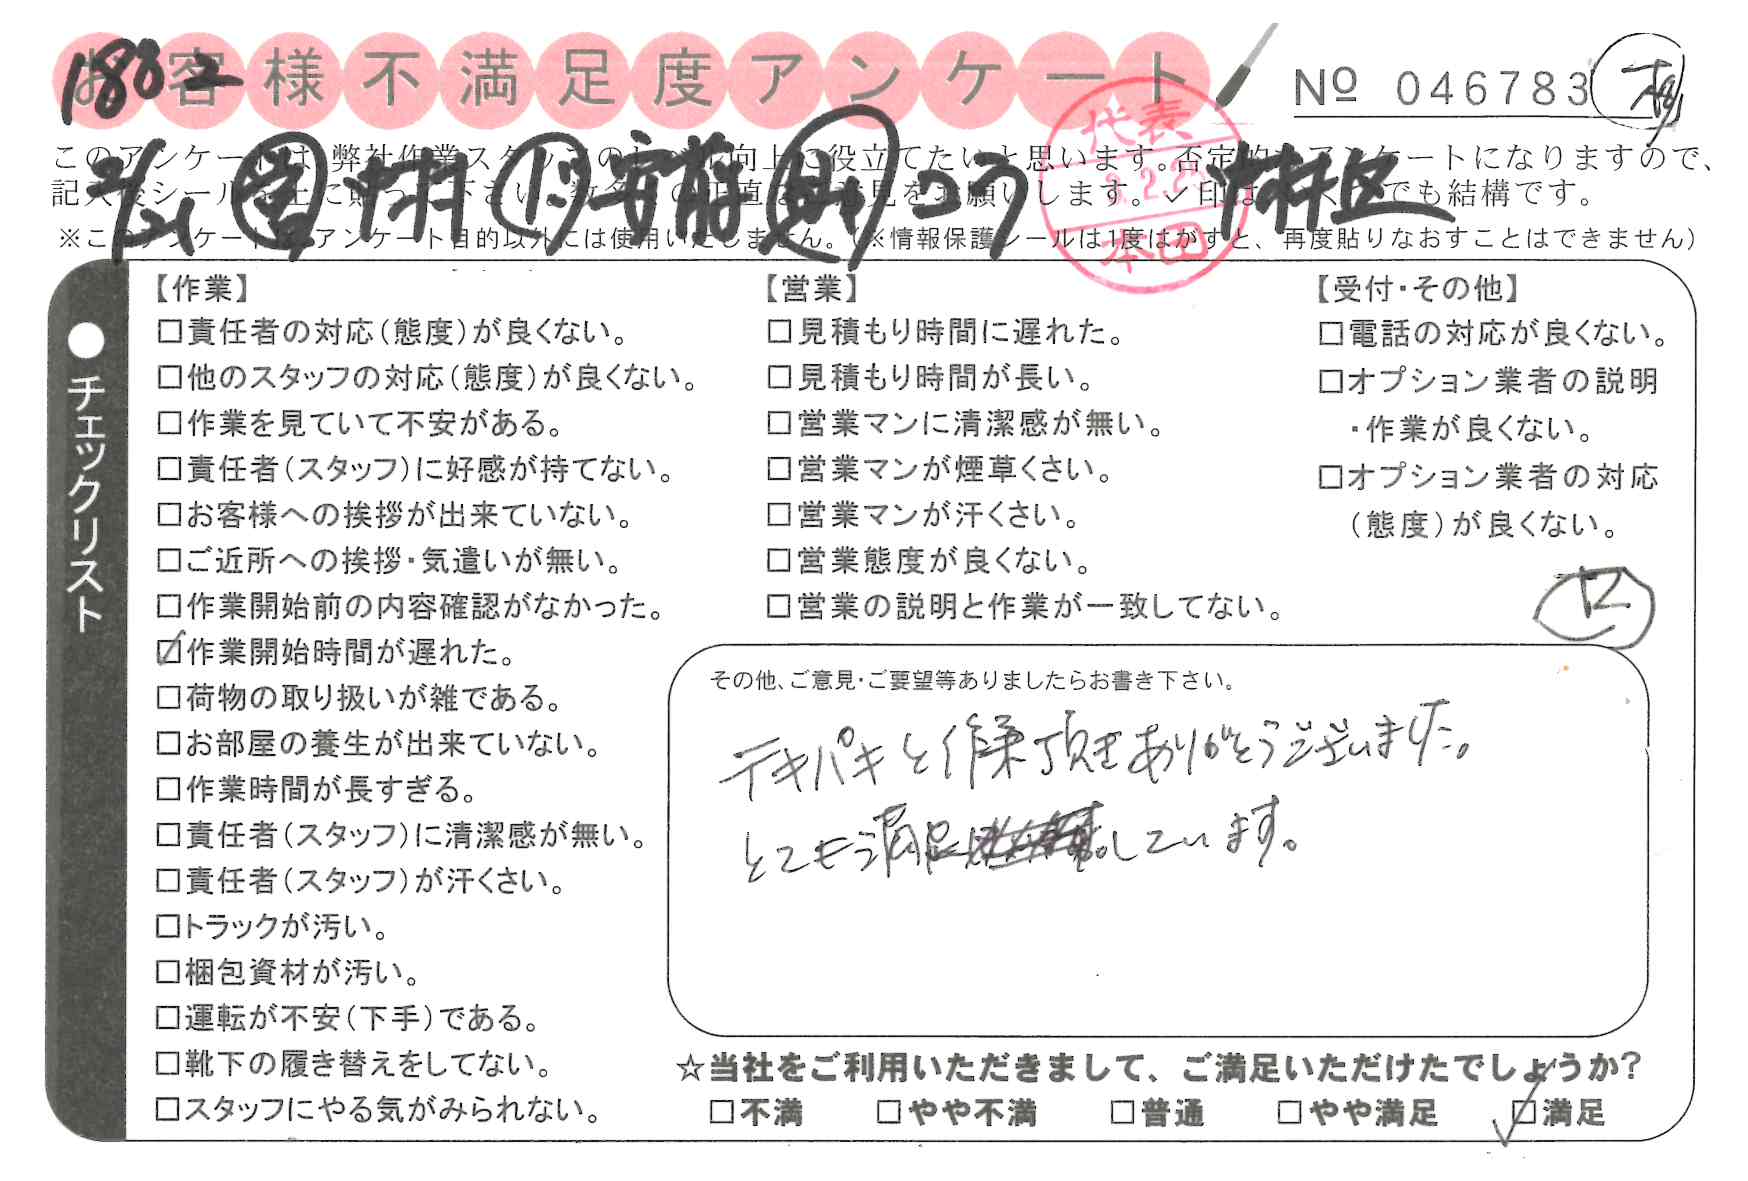 お客様不満足度アンケート
№ 046783
1802
このアンケートは、弊社作業スタッフの 向上に役立てたいと思います。否定的 アンケートになりますので、
記入後シール 上に貼って下さい。数多くの正直なご意見をお願いします。✓印は でも結構です。
2/21 営 中村 ド 安藤 助 コウ 中村区
代表
3.2.2
本田
※このアンケートは、アンケート目的以外には使用いたしません。(※情報保護シールは1度はがすと、再度貼りなおすことはできません)
●チェックリスト
【作業】
□責任者の対応(態度)が良くない。
□他のスタッフの対応(態度)が良くない。
□作業を見ていて不安がある。
□責任者(スタッフ)に好感が持てない。
□お客様への挨拶が出来ていない。
□ご近所への挨拶・気遣いが無い。
□作業開始前の内容確認がなかった。
☑作業開始時間が遅れた。
□荷物の取り扱いが雑である。
□お部屋の養生が出来ていない。
□作業時間が長すぎる。
□責任者(スタッフ)に清潔感が無い。
□責任者(スタッフ)が汗くさい。
□トラックが汚い。
□梱包資材が汚い。
□運転が不安(下手)である。
□靴下の履き替えをしてない。
□スタッフにやる気がみられない。
【営業】
□見積もり時間に遅れた。
□見積もり時間が長い。
□営業マンに清潔感が無い。
□営業マンが煙草くさい。
□営業マンが汗くさい。
□営業態度が良くない。
□営業の説明と作業が一致してない。
【受付・その他】
□電話の対応が良くない。
□オプション業者の説明
・作業が良くない。
□オプション業者の対応
(態度)が良くない。
その他、ご意見・ご要望等ありましたらお書き下さい。
テキパキと作業頂きありがとうございました。
とても満足しています。
☆当社をご利用いただきまして、ご満足いただけたでしょうか?
□不満 □やや不満 □普通 □やや満足 ☑満足